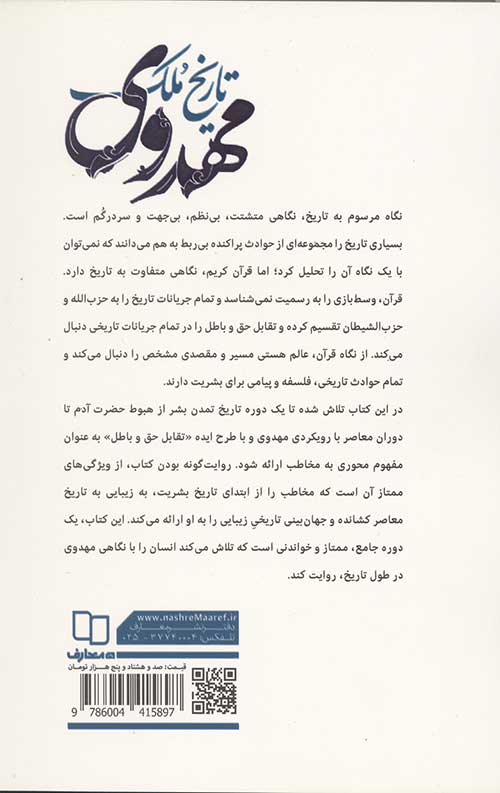 تاریخ مُلک
مهدوی
نگاه مرسوم به تاریخ، نگاهی متشتت، بی‌نظم، بی‌جهت و سردرگُم است.
بسیاری تاریخ را مجموعه‌ای از حوادث پراکنده بی‌ربط به هم می‌دانند که نمی‌توان
با یک نگاه آن را تحلیل کرد؛ اما قرآن کریم، نگاهی متفاوت به تاریخ دارد.
قرآن، وسط‌بازی را به رسمیت نمی‌شناسد و تمام جریانات تاریخ را به حزب‌الله و
حزب‌الشیطان تقسیم کرده و تقابل حق و باطل را در تمام جریانات تاریخی دنبال
می‌کند. از نگاه قرآن، عالم هستی مسیر و مقصدی مشخص را دنبال می‌کند و
تمام حوادث تاریخی، فلسفه و پیامی برای بشریت دارند.
در این کتاب تلاش شده تا یک دوره تاریخ تمدن بشر از هبوط حضرت آدم تا
دوران معاصر با رویکردی مهدوی و با طرح ایده «تقابل حق و باطل» به عنوان
مفهوم محوری به مخاطب ارائه شود. روایت‌گونه بودن کتاب، از ویژگی‌های
ممتاز آن است که مخاطب را از ابتدای تاریخ بشریت، به زیبایی به تاریخ
معاصر کشانده و جهان‌بینی تاریخیِ زیبایی را به او ارائه می‌کند. این کتاب، یک
دوره جامع، ممتاز و خواندنی است که تلاش می‌کند انسان را با نگاهی مهدوی
در طول تاریخ، روایت کند.
www.nashreMaaref.ir
دفتر نشر معارف
تلفکس: ۳۷۷۴۰۰۰۴ - ۰۲۵
معارف
قیمت: صد و هشتاد و پنج هزار تومان
9 786004 415897